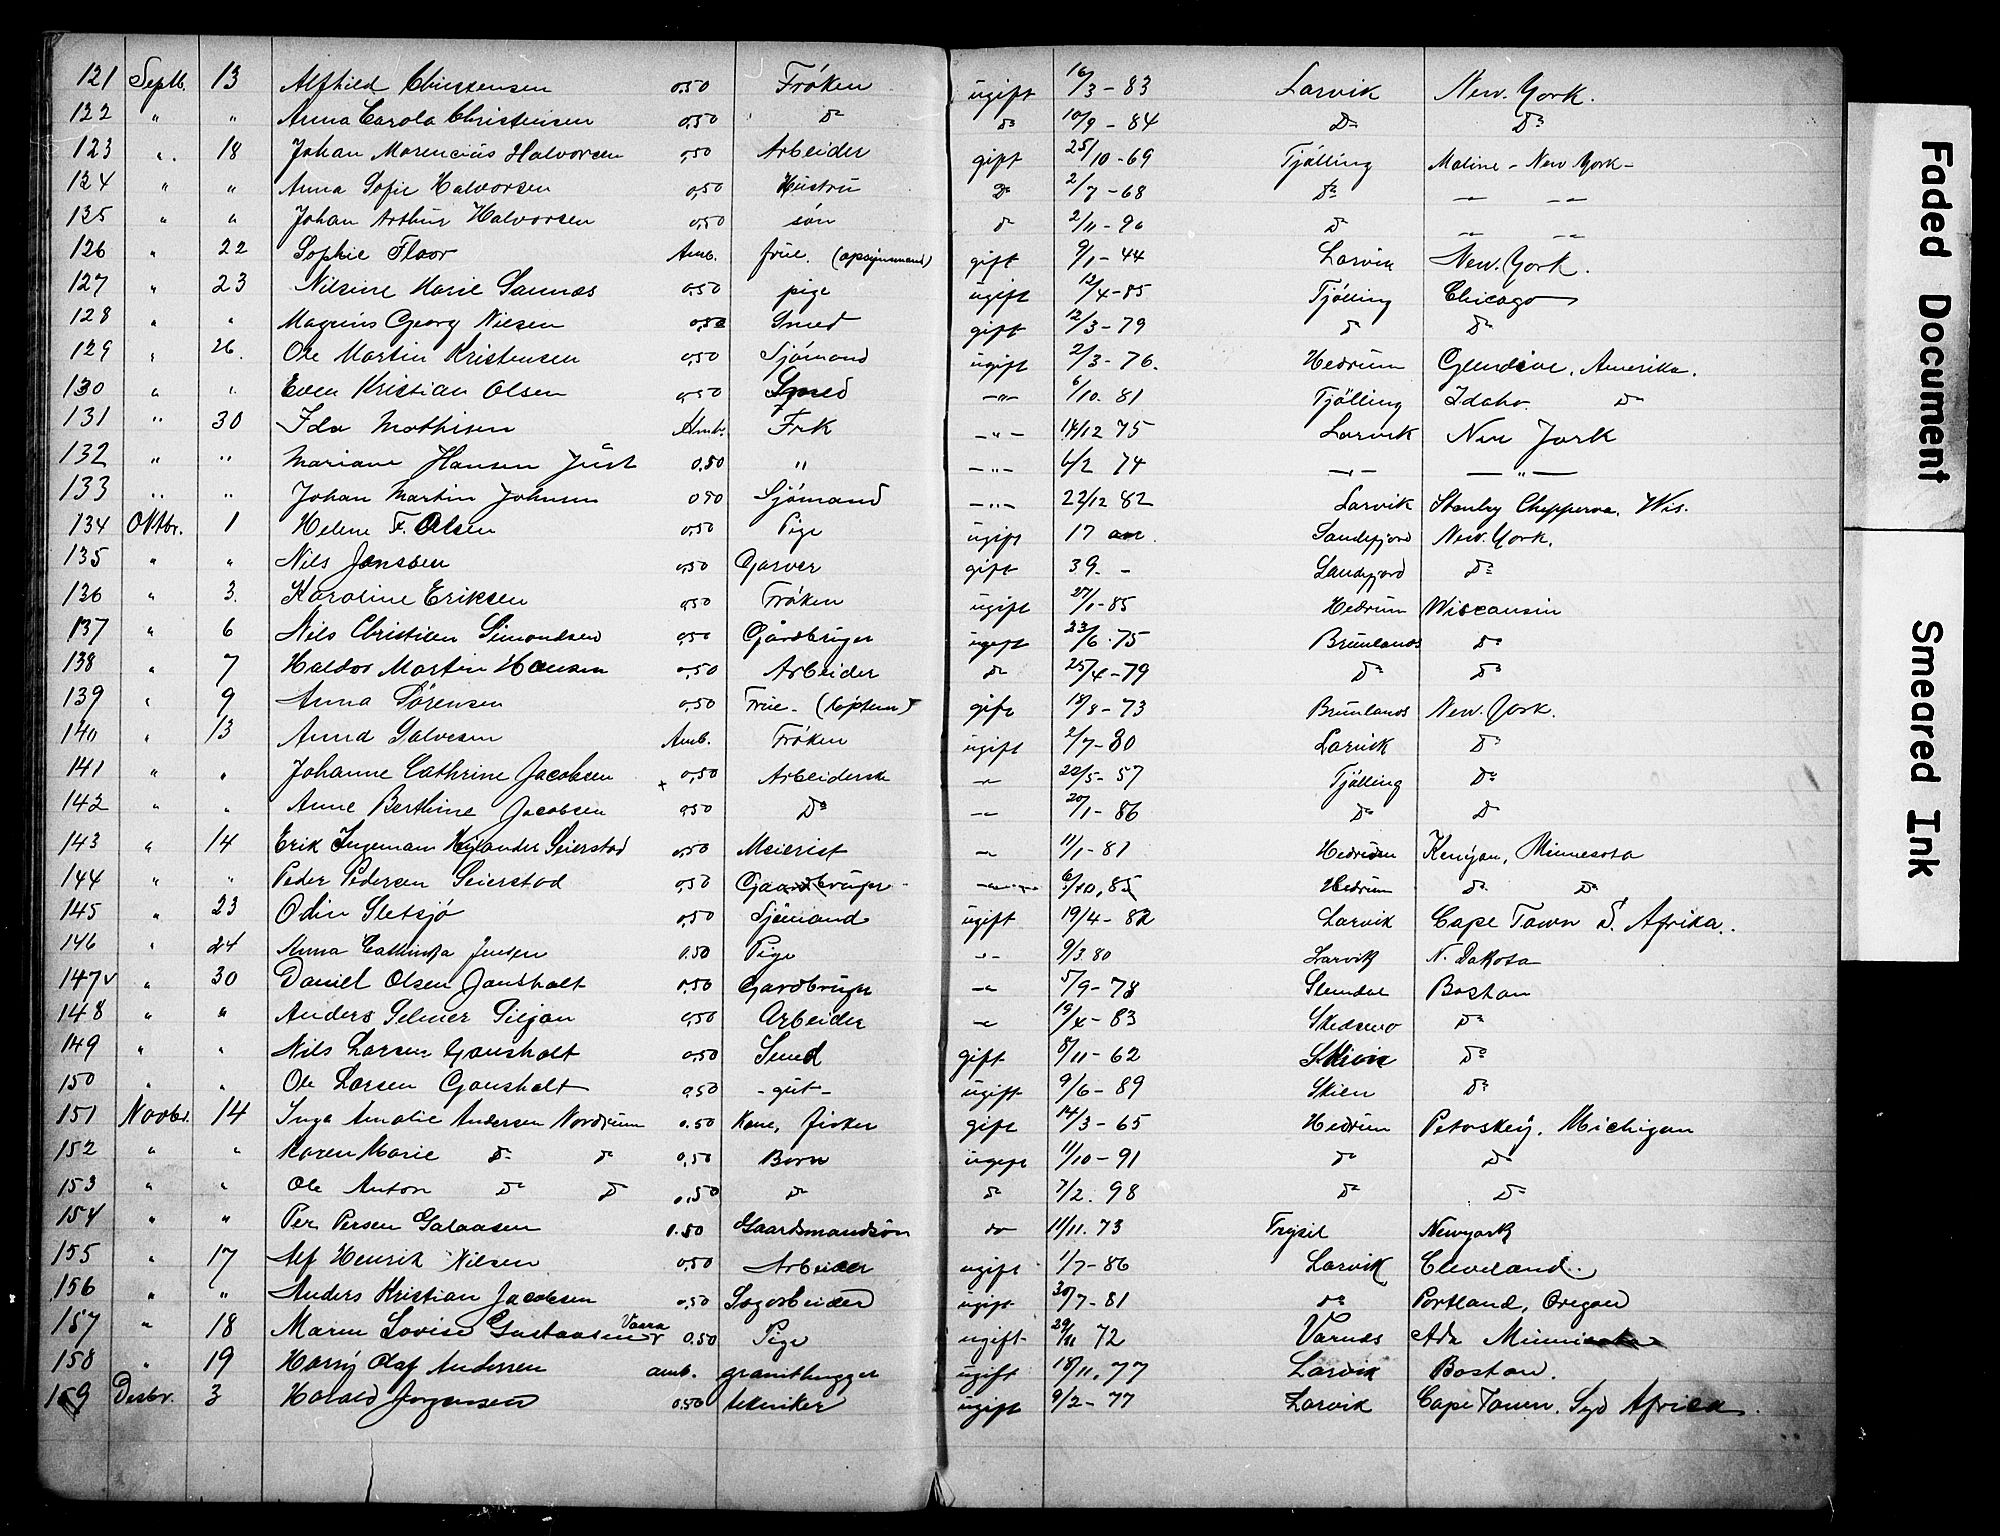 121 Septb. 13 Alfhild Christensen 0,50 Frøken ugift 16/3-83 Larvik New York.
122 " " Anna Carola Christensen 0,50 do do 10/9-84 Do Do
123 " 18 Johan Marencius Halvorsen 0,50 Arbeider gift 25/10-69 Tjølling Maline - New York -
124 " " Anna Sofie Halvorsen 0,50 Hustru Do 2/7-68 do — —"—
125 " " Johan Arthur Halvorsen 0,50 søn do 2/11-96 do —"— —"—
126 " 22 Sophie Floor Amb. frue. (opsynsmand) gift 9/1-44 Larvik New York.
127 " 23 Nilsine Marie Sannes 0,50 pige ugift 12/4-85 Tjølling Chicago
128 " " Magnus Georg Nilsen 0,50 Smed gift 12/3-79 do do
129 " 26. Ole Martin Kristensen 0,50 Sjømand ugift 2/3-76. Hedrum Glendive, Amerika.
130 " " Even Kristian Olsen 0,50 Smed —"— 6/10.81 Tjølling Idaho. do
131 " 30 Ida Mathisen Amb. Frk —"— 14/12 75 Larvik New York
132 " " Mariane Hansen Just 0.50 " —"— 6/2 74 —"— —"—
133 " " Johan Martin Johnsen 0.50 Sjømand —"— 22/12 82 Larvik Stanley Chepperva, Wis.
134 Oktbr. 1 Helene F. Olsen 0,50 Pige ugift 17 aar. Sandefjord New York.
135 " " Nils Jonssen 0,50 Garver gift 39. - Sandefjord Do
136 " 3. Karoline Eriksen 0,50 Frøken ugift 27/1-85 Hedrum Wisconsin
137 " 6 Nils Christian Simondsen 0,50 Gårdbruger ugift 23/6-75 Brunlanæs do
138 " 7 Haldor Martin Hansen 0,50 Arbeider do 25/4-79 Do Do
139 " 9 Anna Sørensen 0,50 Frue. (kaptein) gift 18/8-73 Brunlanæs New York.
140 " 13 Anna Salvesen Amb. Frøken ugift 2/7-80 Larvik Do
141 " " Johanne Cathrine Jacobsen + 0,50 Arbeiderske —"— 22/5-57 Tjølling Do
142 " " Anne Berthine Jacobsen 0,50 Do —"— 20/1-86 Do Do
143 " 14 Erik Ingeman Hylander Seierstad 0,50 Meierist —"— 11/1-81 Hedrum Kenyon, Minnesota
144 " " Peder Pedersen Seierstad 0,50 Gaardbruger —"— 6/10.85 Hedrum do do
145 " 23 Odin Sletsjø 0,50 Sjømand ugift 19/4-82 Larvik Cape Town S. Afrika.
146 " 24 Anna Cathinka Jensen 0.50 Pige —"— 9/3.80 Larvik N. Dakota
147 v " 30 Daniel Olsen Jansholt 0,50 Gardbruger —"— 5/9-78 Slemdal Boston
148 " " Anders Selmer Siljan 0,50 Arbeider —"— 12/4-83 Skedsmo Do
149 " " Nils Larsen Gonsholt 0,50 Smed gift 8/11-62 Skien Do
150 " " Ole Larsen Gonsholt 0,50 - gut - ugift 9/6-89 Skien Do
151 Novbr. 14 Inga Amalie Andersen Nordrum 0.50 Kone, Fisker gift 14/3-65 Hedrum Petoskey, Michigan
152 " " Karen Marie do do 0,50 Barn ugift 11/10-91 do Do
153 " " Ole Anton Do Do 0,50 Do do 7/2.98 Do Do
154 " " Per Persen Galaasen 0.50 Gaardmandssøn do 11/11.73 Trysil Newyork
155 " 17 Alf Henrik Nilsen 0,50 Arbeider ugift 1/7-86 Larvik Cleveland.
156 " " Anders Kristian Jacobsen 0,50 Sagarbeider ugift 30/7-81 do Portland, Oregon
157 " 18 Maren Lovise Gustavsen Vaara 0.50 Pige ugift 29/11 72 Varnæs Ada Minnisota
158 " 19 Harry Olaf Andersen amb. granithugger ugift 18/11.77 Larvik Boston.
159 Decbr. 3 Harald Jørgensen 0.50 tekniker ugift 9/2-77 Larvik Cape Town. Syd Afrika
Faded Document
Smeared Ink